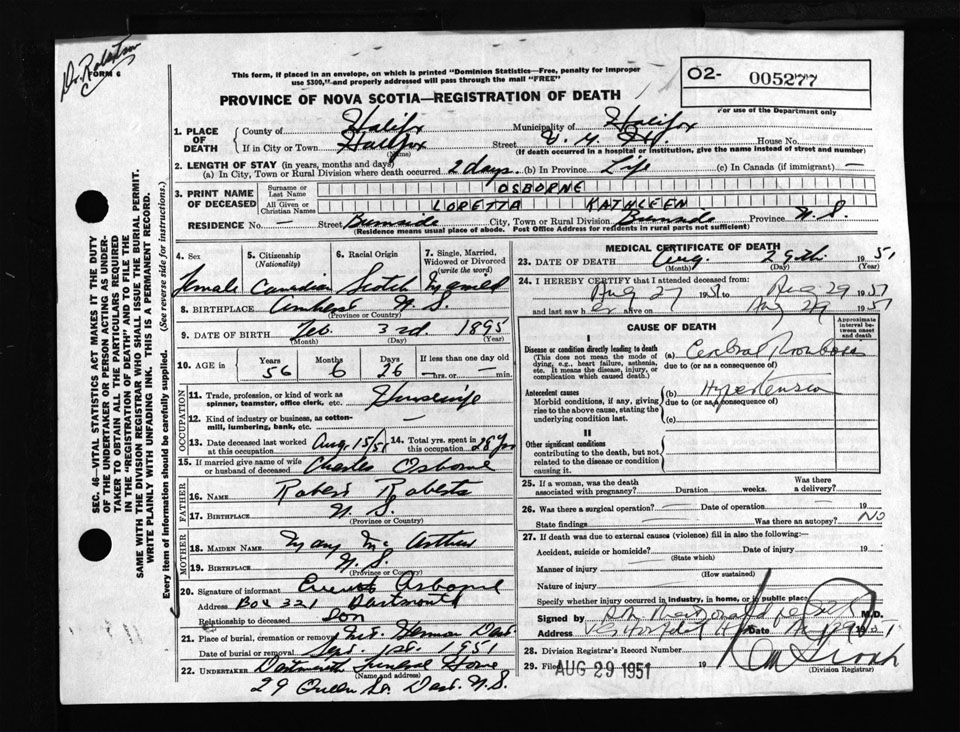 Dr. Robertson
FORM 6
This form, if placed in an envelope, on which is printed "Dominion Statistics—Free, penalty for improper
use $300," and properly addressed will pass through the mail "FREE"
O2- 005277
For use of the Department only
PROVINCE OF NOVA SCOTIA—REGISTRATION OF DEATH
1. PLACE OF DEATH
County of Halifax Municipality of Halifax
If in City or Town Halifax (Name) Street V. G. H. House No.
(If death occurred in a hospital or institution, give the name instead of street and number)
2. LENGTH OF STAY (in years, months and days)
(a) In City, Town or Rural Division where death occurred 2 days (b) In Province Life (c) In Canada (if immigrant) —
3. PRINT NAME OF DECEASED
Surname or Last Name OSBORNE
All Given or Christian Names LORETTA KATHLEEN
RESIDENCE No. — Street Burnside City, Town or Rural Division Burnside Province N.S.
(Residence means usual place of abode. Post Office Address for residents in rural parts not sufficient)
SEC. 46—VITAL STATISTICS ACT MAKES IT THE DUTY
OF THE UNDERTAKER OR PERSON ACTING AS UNDER-
TAKER TO OBTAIN ALL THE PARTICULARS REQUIRED
IN THE "REGISTRATION OF DEATH" AND TO FILE THE
SAME WITH THE DIVISION REGISTRAR WHO SHALL ISSUE THE BURIAL PERMIT.
WRITE PLAINLY WITH UNFADING INK. THIS IS A PERMANENT RECORD.
Every item of information should be carefully supplied. (See reverse side for instructions.)
4. Sex Female
5. Citizenship (Nationality) Canadian
6. Racial Origin Scotch
7. Single, Married, Widowed or Divorced (write the word) Married
8. BIRTHPLACE Amherst N.S.
(Province or Country)
9. DATE OF BIRTH Feb. 3rd 1895
(Month) (Day) (Year)
10. AGE in Years 56 Months 6 Days 26 If less than one day old —hrs. or —min.
OCCUPATION
11. Trade, profession, or kind of work as spinner, teamster, office clerk, etc. Housewife
12. Kind of industry or business, as cotton-mill, lumbering, bank, etc. —
13. Date deceased last worked at this occupation Aug. 15/51 14. Total yrs. spent in this occupation 28 yrs
15. If married give name of wife or husband of deceased Charles Osborne
FATHER
16. NAME Robert Roberts
17. BIRTHPLACE N.S.
(Province or Country)
MOTHER
18. MAIDEN NAME Mary Mc Arthur
19. BIRTHPLACE N.S.
(Province or Country)
20. Signature of informant Osborne
Address Box 321 Dartmouth
Relationship to deceased Son
21. Place of burial, cremation or removal Mt. Hermon Dart.
Date of burial or removal Sept. 1st. 1951
22. UNDERTAKER Dartmouth Funeral Home
(Name and address)
29 Queen St. Dart. N.S.
MEDICAL CERTIFICATE OF DEATH
23. DATE OF DEATH Aug. 29th 1951
(Month) (Day) (Year)
24. I HEREBY CERTIFY that I attended deceased from:
Aug 27 1951 to Aug 29 1951
and last saw her alive on Aug 29 1951
CAUSE OF DEATH
Approximate interval between onset and death
I
Disease or condition directly leading to death
(This does not mean the mode of dying, e.g., heart failure, asthenia, etc. It means the disease, injury, or complication which caused death.)
(a) Cerebral Thrombosis
due to (or as a consequence of)
Antecedent causes
Morbid conditions, if any, giving rise to the above cause, stating the underlying condition last.
(b) Hypertension
due to (or as a consequence of)
(c)
II
Other significant conditions
contributing to the death, but not related to the disease or condition causing it.
25. If a woman, was the death associated with pregnancy? Duration weeks. Was there a delivery?
26. Was there a surgical operation? — Date of operation 19
State findings — Was there an autopsy? No
27. If death was due to external causes (violence) fill in also the following:—
Accident, suicide or homicide? Date of injury 19
(State which)
Manner of injury
(How sustained)
Nature of injury
Specify whether injury occurred in industry, in home, or in public place
Signed by M.D.
Address V G Hospital Date Aug 29 1951
28. Division Registrar's Record Number
29. Filed AUG 29 1951 19
(Division Registrar)